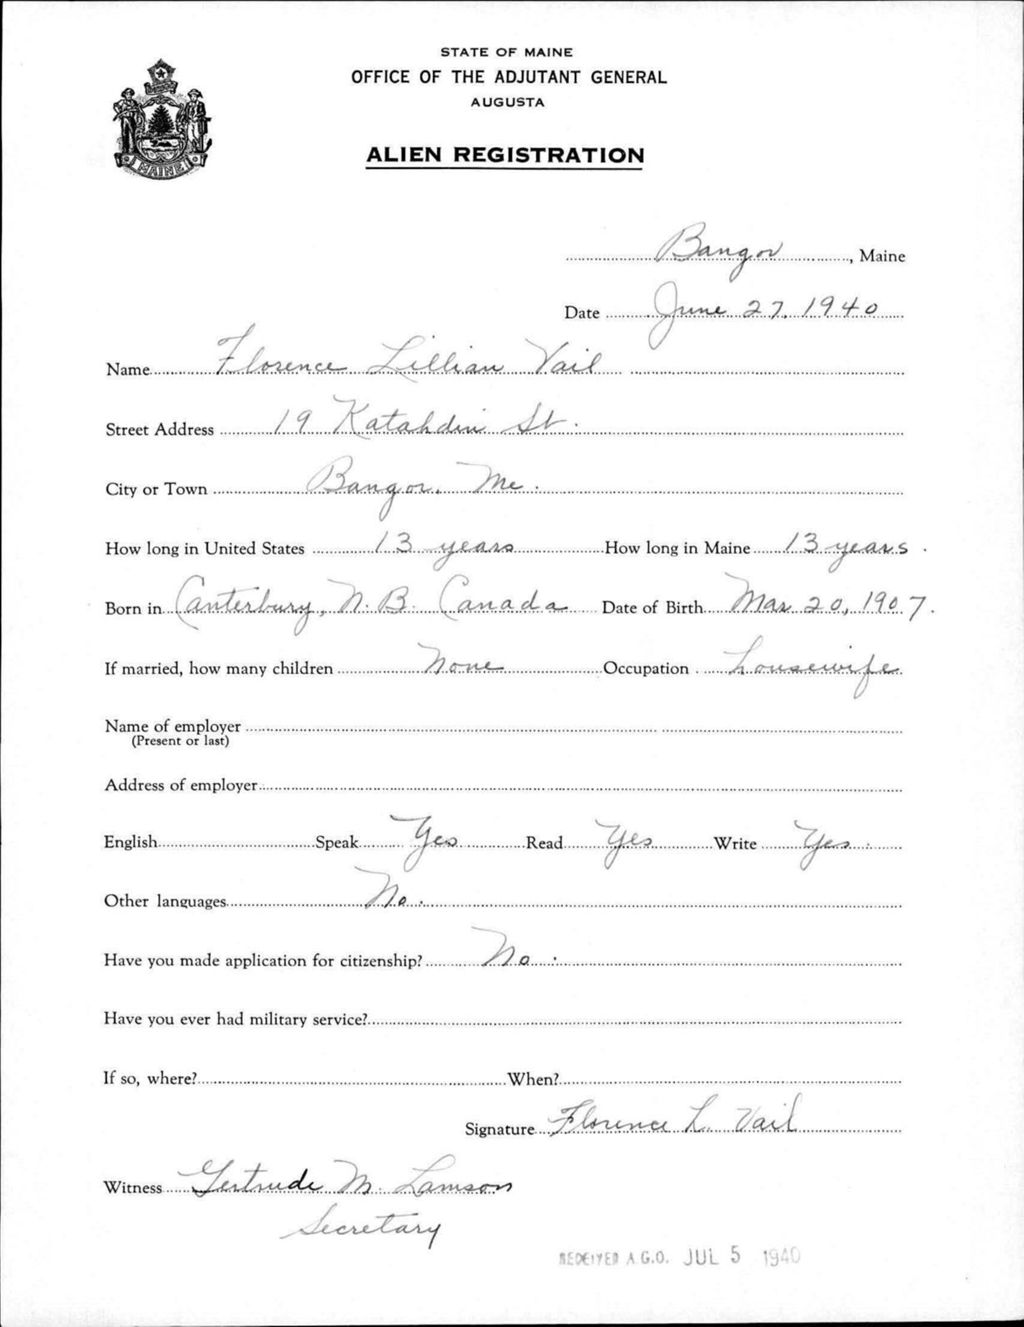 STATE OF MAINE
OFFICE OF THE ADJUTANT GENERAL
AUGUSTA
ALIEN REGISTRATION
MAINE
Bangor, Maine
Date June 27, 1940
Name Florence Lillian Vail
Street Address 19 Katahdin St.
City or Town Bangor, Me.
How long in United States 13 years How long in Maine 13 years.
Born in Canterbury, N.B. Canada Date of Birth Mar 20, 1907.
If married, how many children None Occupation housewife
Name of employer
(Present or last)
Address of employer
English Speak Yes Read Yes Write Yes.
Other languages No.
Have you made application for citizenship? No.
Have you ever had military service?
If so, where? When?
Signature Florence L. Vail
Witness Gertrude M. Lamson
Secretary
RECEIVED A.G.O. JUL 5 1940